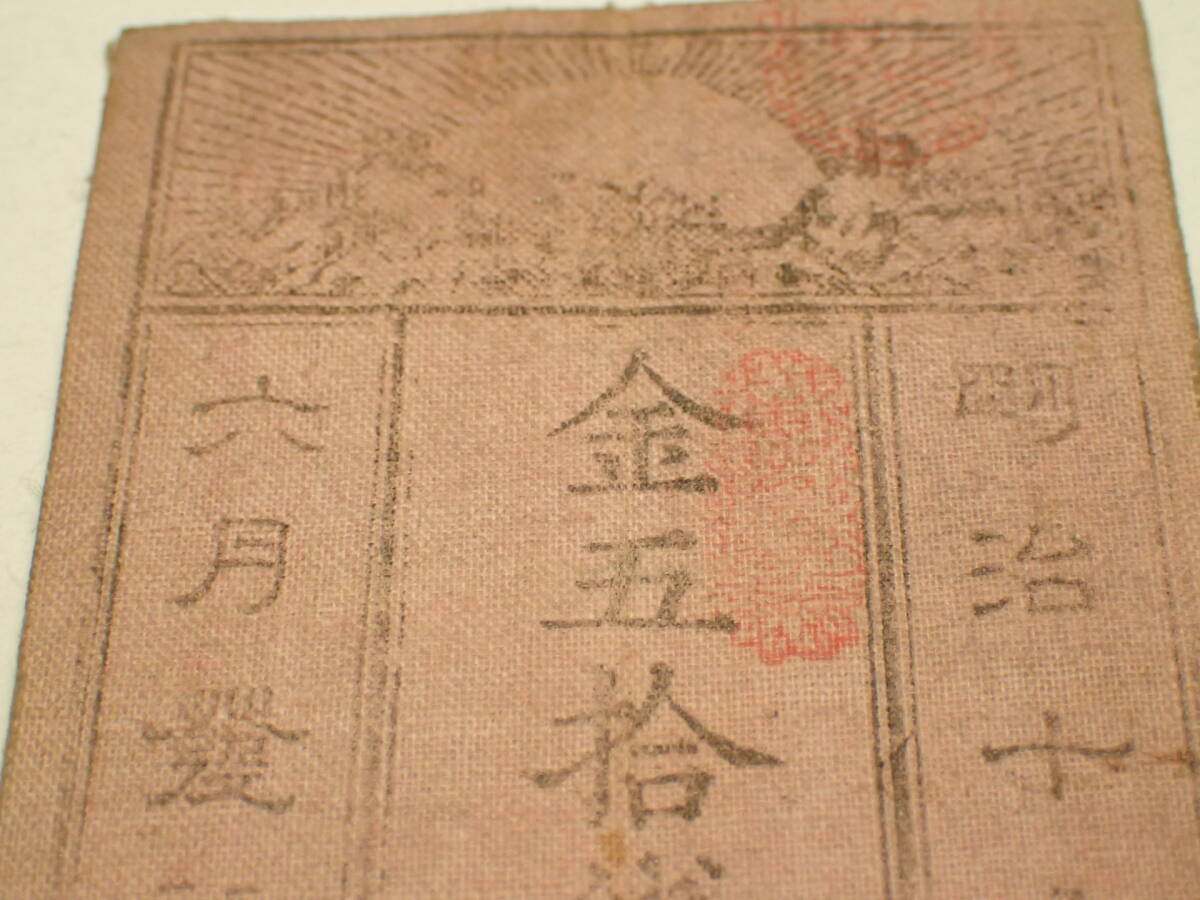 明治十
金五拾
六月發